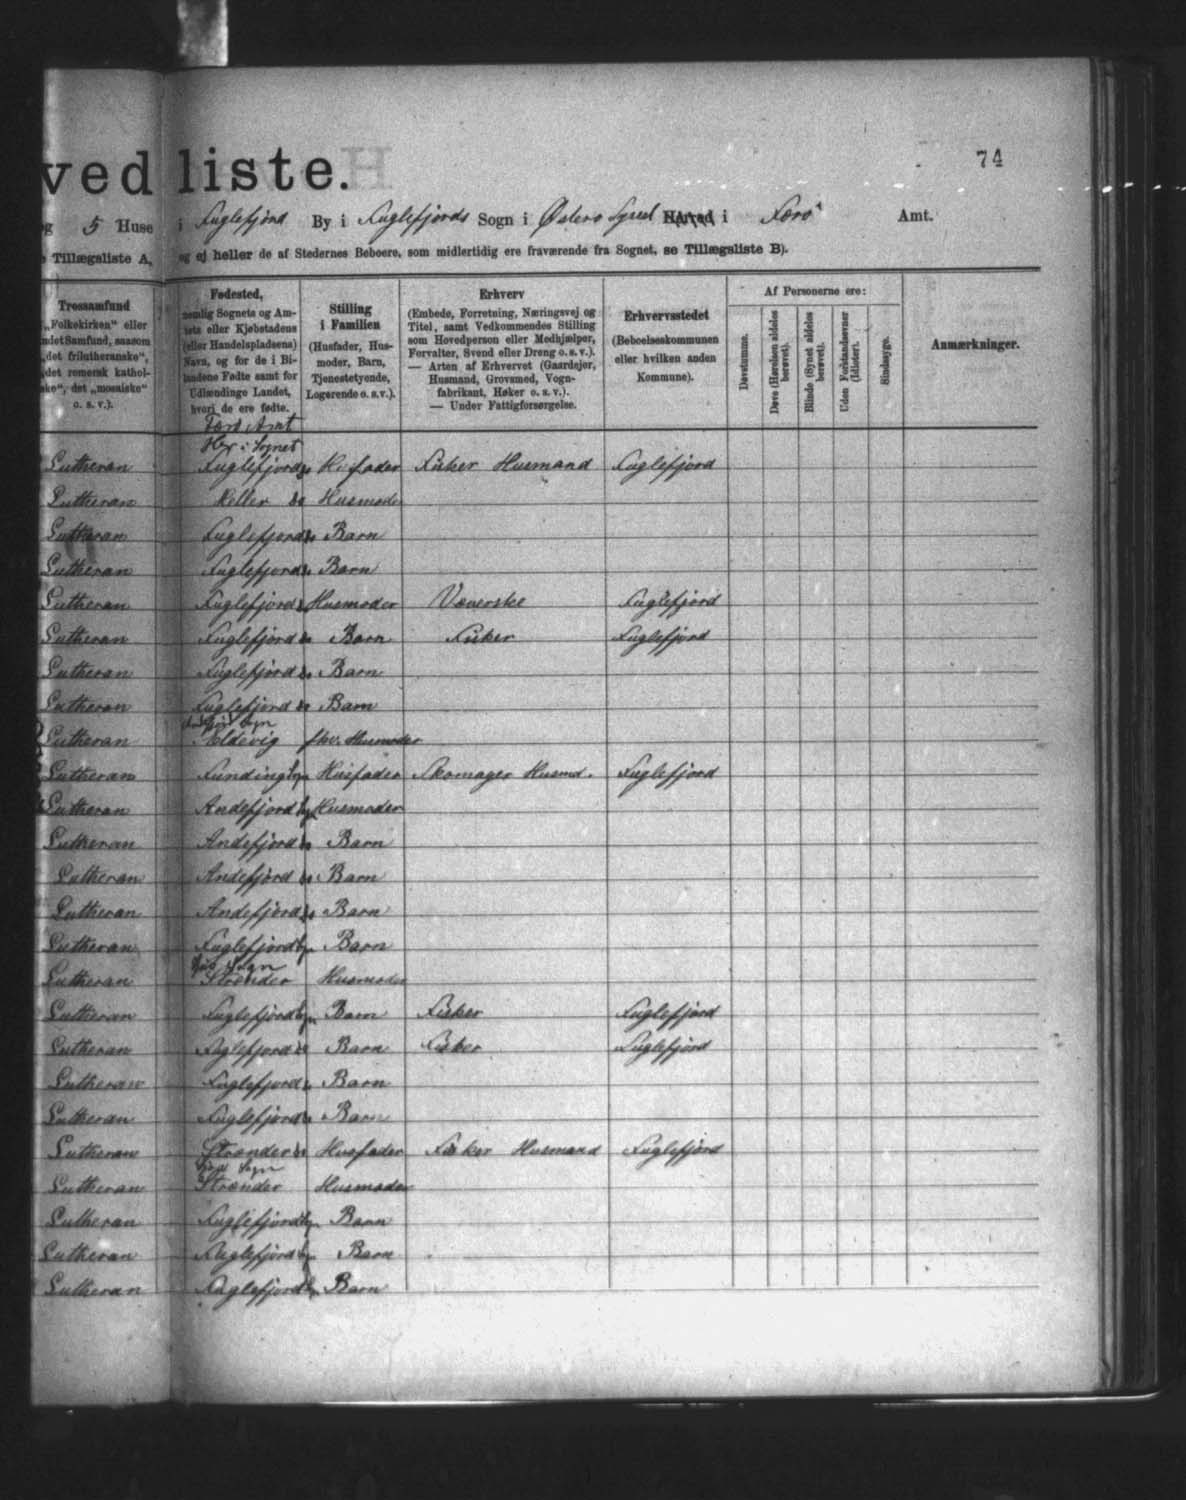 vedliste.
74
og 5 Huse i Fuglefjord By i Fuglefjords Sogn i Østerø Syssel Herred i Færø Amt.
Tillægsliste A, og ej heller de af Stedernes Beboere, som midlertidig ere fraværende fra Sognet, se Tillægsliste B).
Trossamfund
„Folkekirken“ eller
ndet Samfund, saasom
„det frilutheranske“,
„det romersk kathol-
ske“, det „mosaiske“
o. s. v.).
Fødested,
nemlig Sognets og Am-
tets eller Kjøbstadens
(eller Handelspladsens)
Navn, og for de i Bi-
landene Fødte samt for
Udlændinge Landet,
hvori de ere fødte.
Stilling
i Familien
(Husfader, Hus-
moder, Barn,
Tjenestetyende,
Logerende o. s. v.).
Erhverv
(Embede, Forretning, Næringsvej og
Titel, samt Vedkommendes Stilling
som Hovedperson eller Medhjælper,
Forvalter, Svend eller Dreng o. s. v.).
— Arten af Erhvervet (Gaardejer,
Husmand, Grovsmed, Vogn-
fabrikant, Høker o. s. v.).
— Under Fattigforsørgelse.
Erhvervsstedet
(Beboelseskommunen
eller hvilken anden
Kommune).
Af Personerne ere:
Døvstumme.
Døve (Hørelsen aldeles
berøvet).
Blinde (Synet aldeles
berøvet).
Uden Forstandsevner
(Idioter).
Sindssyge.
Anmærkninger.
Færø Amt
Her i Sognet
Lutheran Fuglefjord Husfader Fisker Husmand Fuglefjord
Lutheran Heller do Husmoder
Lutheran Fuglefjord do Barn
Lutheran Fuglefjord do Barn
Lutheran Fuglefjord Husmoder Væverske Fuglefjord
Lutheran Fuglefjord do Barn Fisker Fuglefjord
Lutheran Fuglefjord do Barn
Lutheran Fuglefjord do Barn
Sogn
Lutheran Eldevig fhv. Husmoder
Lutheran Funding Husfader Skomager Husmd. Fuglefjord
Lutheran Andefjord Husmoder
Lutheran Andefjord do Barn
Lutheran Andefjord do Barn
Lutheran Andefjord do Barn
Lutheran Fuglefjord Barn
Sogn
Lutheran Strænder Husmoder
Lutheran Fuglefjord Barn Fisker Fuglefjord
Lutheran Fuglefjord do Barn Fisker Fuglefjord
Lutheran Fuglefjord do Barn
Lutheran Fuglefjord do Barn
Lutheran Strænder Husfader Fisker Husmand Fuglefjord
Sogn
Lutheran Strænder Husmoder
Lutheran Fuglefjord Barn
Lutheran Fuglefjord Barn
Lutheran Fuglefjord Barn